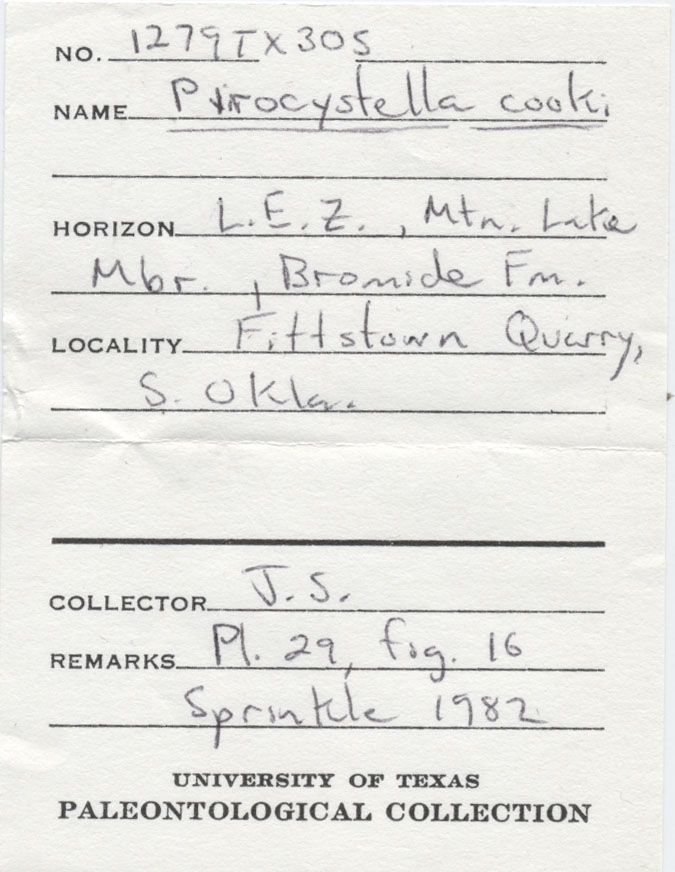 NO. 1279TX305
NAME Pirocystella cooki
HORIZON L.E.Z., Mtn. Lake
Mbr., Bromide Fm.
LOCALITY Fittstown Quarry,
S. Okla.
COLLECTOR J.S.
REMARKS Pl. 29, fig. 16
Sprinkle 1982
UNIVERSITY OF TEXAS
PALEONTOLOGICAL COLLECTION